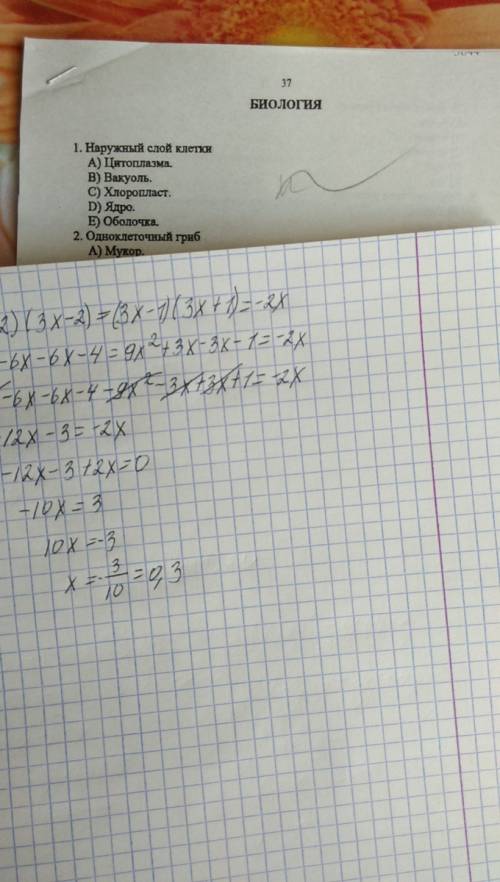 37
БИОЛОГИЯ
1. Наружный слой клетки
A) Цитоплазма.
B) Вакуоль.
C) Хлоропласт.
D) Ядро.
E) Оболочка.
2. Одноклеточный гриб
A) Мукор.
2) (3x-2) = (3x-1)(3x+1) = -2x
-6x-6x-4 = 9x²+3x-3x-1 = -2x
-6x-6x-4-9x²-3x+3x+1 = -2x
12x-3 = -2x
-12x-3+2x=0
-10x = 3
10x = -3
x = -3/10 = 0,3